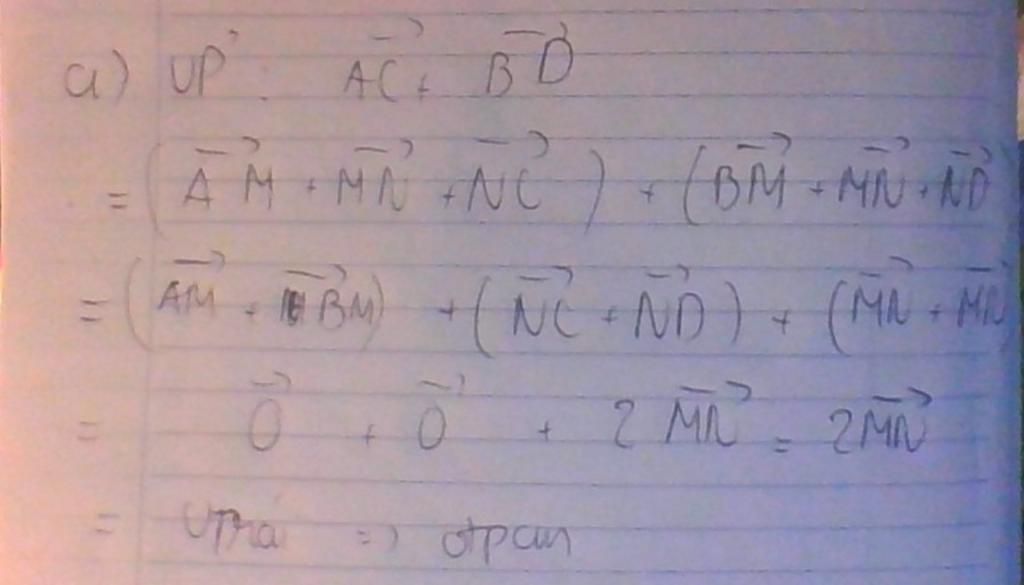 a) VP: \overrightarrow{AC} + \overrightarrow{BD}
= (\overrightarrow{AM} + \overrightarrow{MN} + \overrightarrow{NC}) + (\overrightarrow{BM} + \overrightarrow{MN} + \overrightarrow{ND}
= (\overrightarrow{AM} + \overrightarrow{BM}) + (\overrightarrow{NC} + \overrightarrow{ND}) + (\overrightarrow{MN} + \overrightarrow{MN}
= \overrightarrow{0} + \overrightarrow{0} + 2\overrightarrow{MN} = 2\overrightarrow{MN}
= Vtrái => đpcm